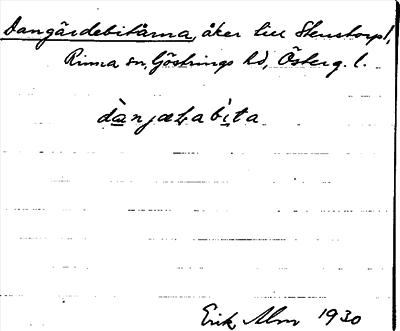 Dangärdebitarna, åker till Stenstorp 1,
Rinna sn, Göstrings hd, Österg. l.
dànjæ̨ab̀ı̨ta
Erik Alm 1930